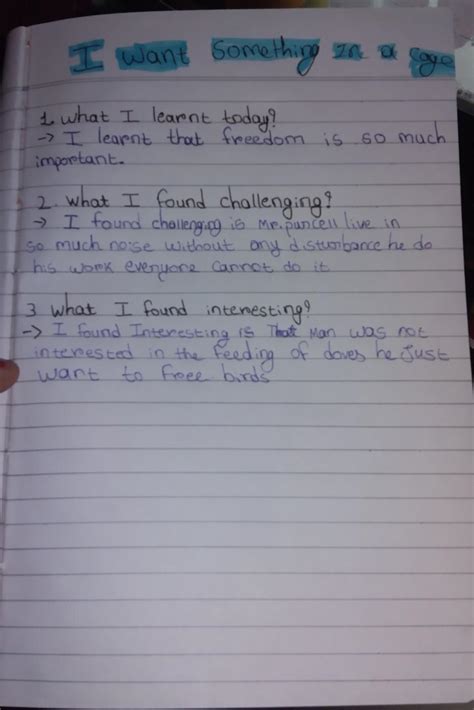 I want Something In a Cage
1. What I learnt today?
→ I learnt that freedom is so much
important.
2. What I found challenging?
→ I found challenging is Mr. purcell live in
so much noise without any disturbance he do
his work everyone cannot do it
3 What I found interesting?
→ I found Interesting is That Man was not
interested in the feeding of doves he just
want to free birds